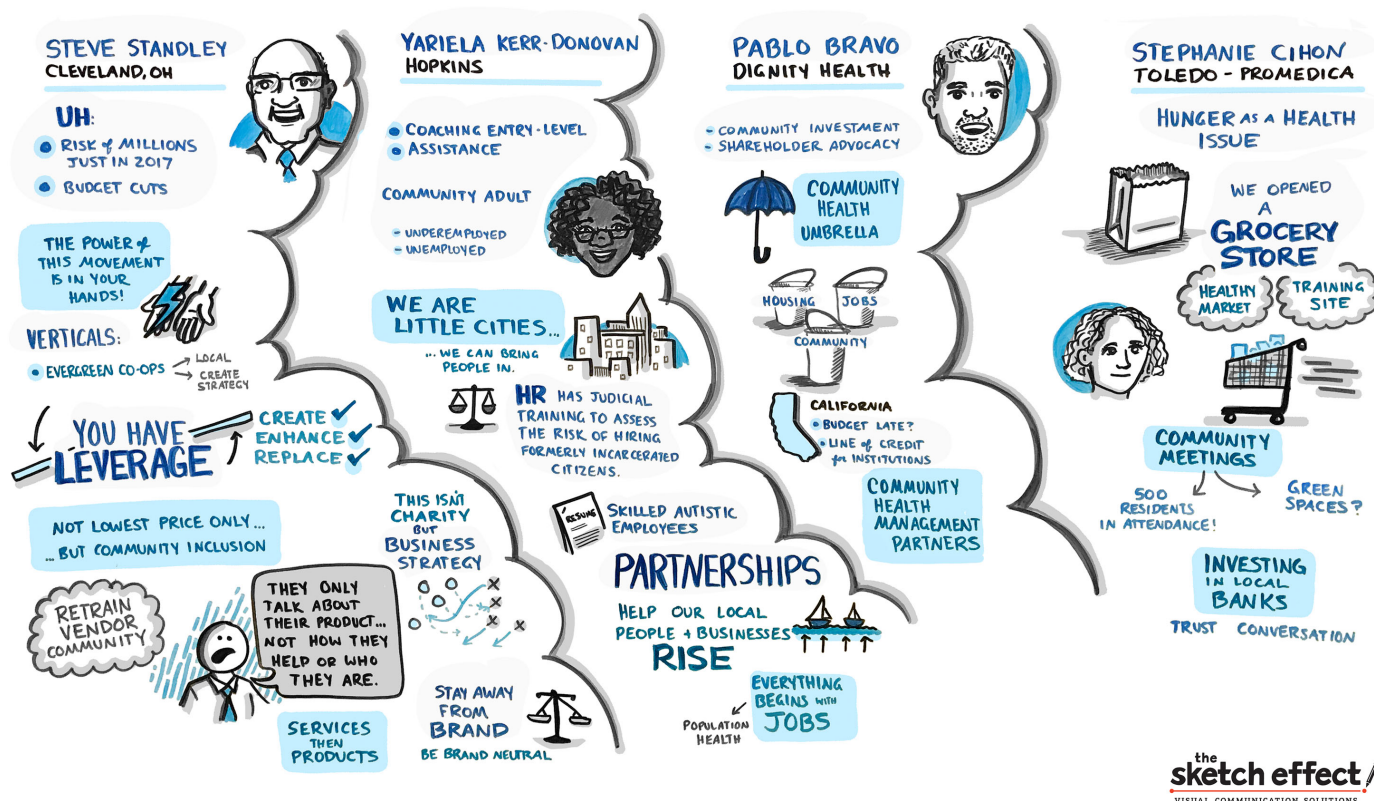 STEVE STANDLEY
CLEVELAND, OH
UH:
RISK of MILLIONS
JUST IN 2017
BUDGET CUTS
THE POWER of
THIS MOVEMENT
IS IN YOUR
HANDS!
VERTICALS:
EVERGREEN CO-OPS
LOCAL
CREATE
STRATEGY
YOU HAVE
LEVERAGE
CREATE
ENHANCE
REPLACE
NOT LOWEST PRICE ONLY...
...BUT COMMUNITY INCLUSION
RETRAIN
VENDOR
COMMUNITY
THEY ONLY
TALK ABOUT
THEIR PRODUCT...
NOT HOW THEY
HELP OR WHO
THEY ARE.
SERVICES
THEN
PRODUCTS
THIS ISN'T
CHARITY
BUT
BUSINESS
STRATEGY
STAY AWAY
FROM
BRAND
BE BRAND NEUTRAL
YARIELA KERR-DONOVAN
HOPKINS
COACHING ENTRY-LEVEL
ASSISTANCE
COMMUNITY ADULT
- UNDEREMPLOYED
- UNEMPLOYED
WE ARE
LITTLE CITIES...
...WE CAN BRING
PEOPLE IN.
HR HAS JUDICIAL
TRAINING TO ASSESS
THE RISK OF HIRING
FORMERLY INCARCERATED
CITIZENS.
RESUME
SKILLED AUTISTIC
EMPLOYEES
PARTNERSHIPS
HELP OUR LOCAL
PEOPLE + BUSINESSES
RISE
EVERYTHING
BEGINS WITH
JOBS
POPULATION
HEALTH
PABLO BRAVO
DIGNITY HEALTH
- COMMUNITY INVESTMENT
- SHAREHOLDER ADVOCACY
COMMUNITY
HEALTH
UMBRELLA
HOUSING
JOBS
COMMUNITY
CALIFORNIA
BUDGET LATE?
LINE of CREDIT
for INSTITUTIONS
COMMUNITY
HEALTH
MANAGEMENT
PARTNERS
STEPHANIE CIHON
TOLEDO - PROMEDICA
HUNGER AS A HEALTH
ISSUE
WE OPENED
A
GROCERY
STORE
HEALTHY
MARKET
TRAINING
SITE
COMMUNITY
MEETINGS
500
RESIDENTS
IN ATTENDANCE!
GREEN
SPACES?
INVESTING
IN LOCAL
BANKS
TRUST CONVERSATION
the
sketch effect
VISUAL COMMUNICATION SOLUTIONS